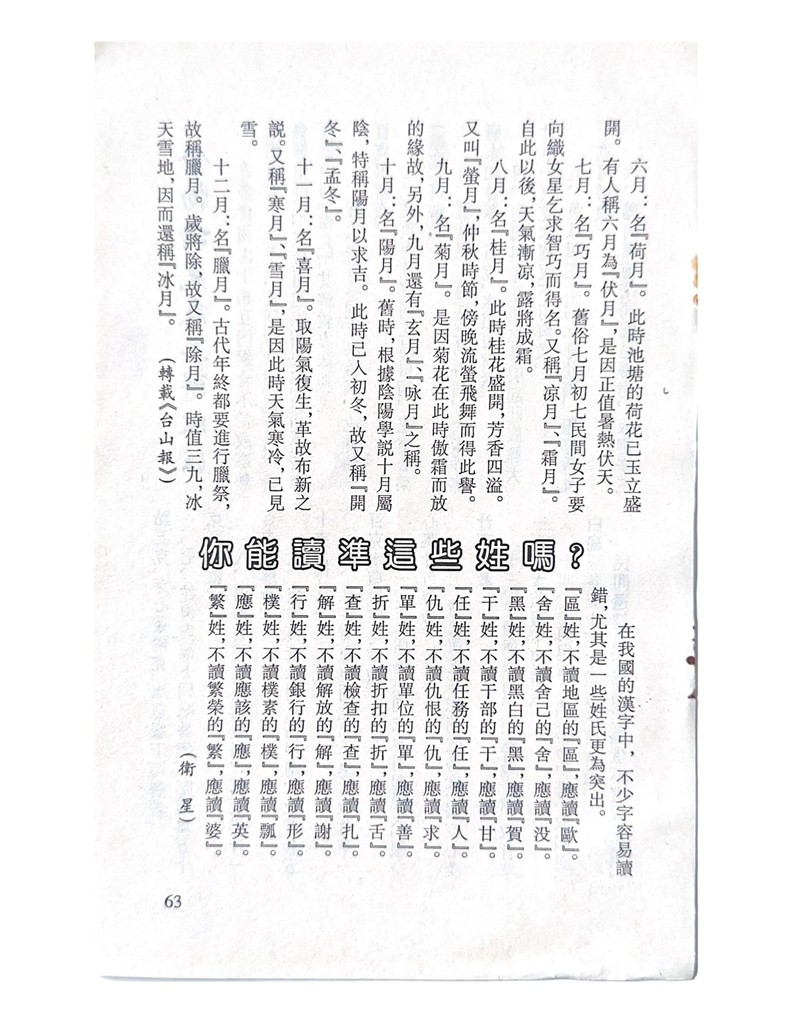 六月：名『荷月』。此時池塘的荷花已玉立盛
開。有人稱六月為『伏月』，是因正值暑熱伏天。
七月：名『巧月』。舊俗七月初七民間女子要
向織女星乞求智巧而得名。又稱『凉月』、『霜月』。
自此以後，天氣漸凉，露將成霜。
八月：名『桂月』。此時桂花盛開，芳香四溢。
又叫『螢月』，仲秋時節，傍晚流螢飛舞而得此譽。
九月：名『菊月』。是因菊花在此時傲霜而放
的緣故，另外，九月還有『玄月』、『咏月』之稱。
十月：名『陽月』。舊時，根據陰陽學説十月屬
陰，特稱陽月以求吉。此時已入初冬，故又稱『開
冬』、『孟冬』。
十一月：名『喜月』。取陽氣復生，革故布新之
説。又稱『寒月』、『雪月』，是因此時天氣寒冷，已見
雪。
十二月：名『臘月』。古代年終都要進行臘祭，
故稱臘月。歲將除，故又稱『除月』。時值三九，冰
天雪地，因而還稱『冰月』。
（轉載《台山報》）
你能讀準這些姓嗎？
在我國的漢字中，不少字容易讀
錯，尤其是一些姓氏更為突出。
『區』姓，不讀地區的『區』，應讀『歐』。
『舍』姓，不讀舍己的『舍』，應讀『没』。
『黑』姓，不讀黑白的『黑』，應讀『賀』。
『干』姓，不讀干部的『干』，應讀『甘』。
『任』姓，不讀任務的『任』，應讀『人』。
『仇』姓，不讀仇恨的『仇』，應讀『求』。
『單』姓，不讀單位的『單』，應讀『善』。
『折』姓，不讀折扣的『折』，應讀『舌』。
『查』姓，不讀檢查的『查』，應讀『扎』。
『解』姓，不讀解放的『解』，應讀『謝』。
『行』姓，不讀銀行的『行』，應讀『形』。
『樸』姓，不讀樸素的『樸』，應讀『瓢』。
『應』姓，不讀應該的『應』，應讀『英』。
『繁』姓，不讀繁榮的『繁』，應讀『婆』。
（衛星）
63